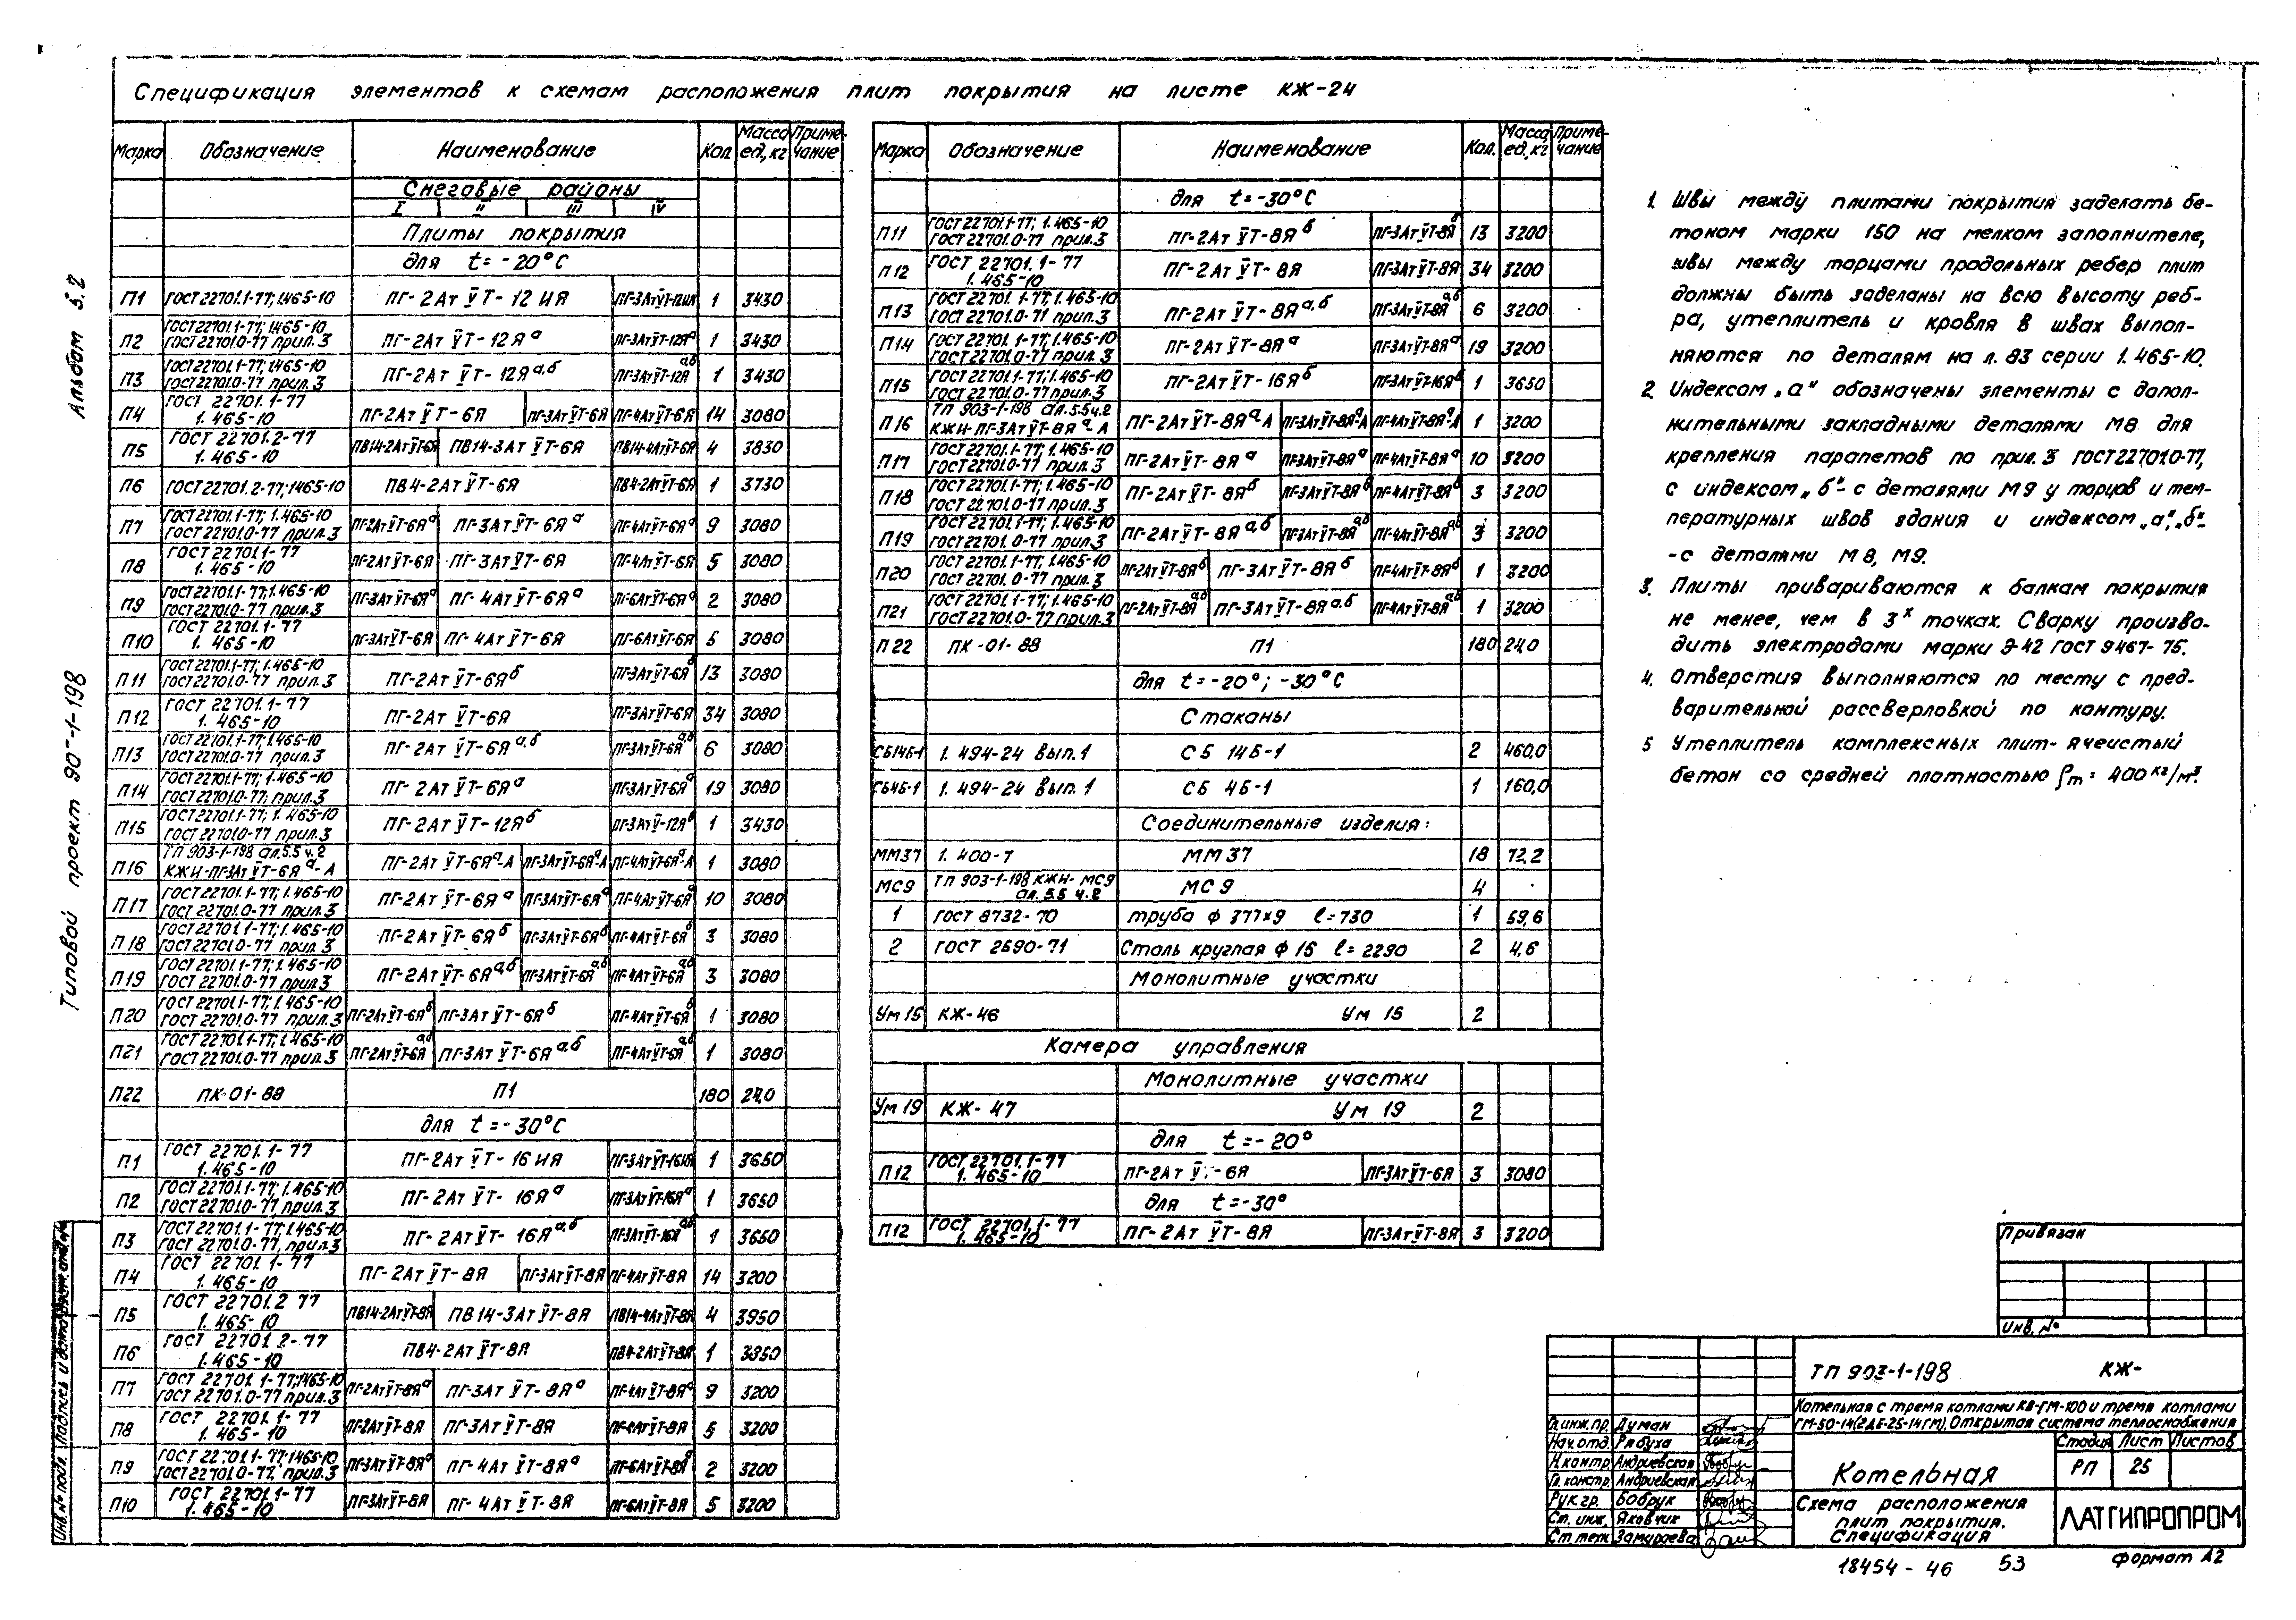 Спецификация элементов к схемам расположения плит покрытия на листе КЖ-24
Марка Обозначение Наименование Кол Масса ед,кг Приме-чание
Снеговые районы
I II III IV
Плиты покрытия
для t = -20°С
П1 ГОСТ 22701.1-77; 1.465-10 ПГ-2Ат V Т-12ИЯ ПГ-3Ат V Т-12ИЯ 1 3430
П2 ГОСТ 22701.1-77; 1.465-10 ГОСТ 22701.0-77 прил.3 ПГ-2Ат V Т-12Яа ПГ-3Ат V Т-12Яа 1 3430
П3 ГОСТ 22701.1-77; 1.465-10 ГОСТ 22701.0-77 прил.3 ПГ-2Ат V Т-12Яа,б ПГ-3Ат V Т-12Яа,б 1 3430
П4 ГОСТ 22701.1-77 1.465-10 ПГ-2Ат V Т-6Я ПГ-3Ат V Т-6Я ПГ-4Ат V Т-6Я 14 3080
П5 ГОСТ 22701.2-77 1.465-10 ПВ14-2Ат V Т-6Я ПВ14-3Ат V Т-6Я ПВ14-4Ат V Т-6Я 4 3830
П6 ГОСТ 22701.2-77; 1.465-10 ПВ4-2Ат V Т-6Я ПВ4-2Ат V Т-6Я 1 3730
П7 ГОСТ 22701.1-77; 1.465-10 ГОСТ 22701.0-77 прил.3 ПГ-2Ат V Т-6Яа ПГ-3Ат V Т-6Яа ПГ-4Ат V Т-6Яа 9 3080
П8 ГОСТ 22701.1-77 1.465-10 ПГ-2Ат V Т-6Я ПГ-3Ат V Т-6Я ПГ-4Ат V Т-6Я 5 3080
П9 ГОСТ 22701.1-77; 1.465-10 ГОСТ 22701.0-77 прил.3 ПГ-3Ат V Т-6Яа ПГ-4Ат V Т-6Яа ПГ-6Ат V Т-6Яа 2 3080
П10 ГОСТ 22701.1-77 1.465-10 ПГ-3Ат V Т-6Я ПГ-4Ат V Т-6Я ПГ-6Ат V Т-6Я 5 3080
П11 ГОСТ 22701.1-77; 1.465-10 ГОСТ 22701.0-77 прил.3 ПГ-2Ат V Т-6Яб ПГ-3Ат V Т-6Яб 13 3080
П12 ГОСТ 22701.1-77 1.465-10 ПГ-2Ат V Т-6Я ПГ-3Ат V Т-6Я 34 3080
П13 ГОСТ 22701.1-77; 1.465-10 ГОСТ 22701.0-77 прил.3 ПГ-2Ат V Т-6Яа,б ПГ-3Ат V Т-6Яа,б 6 3080
П14 ГОСТ 22701.1-77; 1.465-10 ГОСТ 22701.0-77; прил.3 ПГ-2Ат V Т-6Яа ПГ-3Ат V Т-6Яа 19 3080
П15 ГОСТ 22701.1-77; 1.465-10 ГОСТ 22701.0-77 прил.3 ПГ-2Ат V Т-12Яб ПГ-3Ат V-12Яб 1 3430
П16 ТП 903-1-198 ал.5.5 ч.2 КЖИ-ПГ-3Ат V Т-6Яа-А ПГ-2Ат V Т-6Яа-А ПГ-3Ат V Т-6Яа-А ПГ-4Ат V Т-6Яа-А 1 3080
П17 ГОСТ 22701.1-77; 1.465-10 ГОСТ 22701.0-77 прил.3 ПГ-2Ат V Т-6Яа ПГ-3Ат V Т-6Яа ПГ-4Ат V Т-6Яа 10 3080
П18 ГОСТ 22701.1-77; 1.465-10 ГОСТ 22701.0-77 прил.3 ПГ-2Ат V Т-6Яб ПГ-3Ат V Т-6Яб ПГ-4Ат V Т-6Яб 3 3080
П19 ГОСТ 22701.1-77; 1.465-10 ГОСТ 22701.0-77 прил.3 ПГ-2Ат V Т-6Яа,б ПГ-3Ат V Т-6Яа,б ПГ-4Ат V Т-6Яа,б 3 3080
П20 ГОСТ 22701.1-77; 1.465-10 ГОСТ 22701.0-77 прил.3 ПГ-2Ат V Т-6Яб ПГ-3Ат V Т-6Яб ПГ-4Ат V Т-6Яб 1 3080
П21 ГОСТ 22701.1-77; 1.465-10 ГОСТ 22701.0-77 прил.3 ПГ-2Ат V Т-6Яа,б ПГ-3Ат V Т-6Яа,б ПГ-4Ат V Т-6Яа,б 1 3080
П22 ПК-01-88 П1 180 24,0
для t = -30°С
П1 ГОСТ 22701.1-77 1.465-10 ПГ-2Ат V Т-16ИЯ ПГ-3Ат V Т-16ИЯ 1 3650
П2 ГОСТ 22701.1-77; 1.465-10 ГОСТ 22701.0-77, прил.3 ПГ-2Ат V Т-16Яа ПГ-3Ат V Т-16Яа 1 3650
П3 ГОСТ 22701.1-77; 1.465-10 ГОСТ 22701.0-77, прил.3 ПГ-2Ат V Т-16Яа,б ПГ-3Ат V Т-16Яа,б 1 3650
П4 ГОСТ 22701.1-77 1.465-10 ПГ-2Ат V Т-8Я ПГ-3Ат V Т-8Я ПГ-4Ат V Т-8Я 14 3200
П5 ГОСТ 22701.2 77 1.465-10 ПВ14-2Ат V Т-8Я ПВ14-3Ат V Т-8Я ПВ14-4Ат V Т-8Я 4 3950
П6 ГОСТ 22701 2-77 1.465-10 ПВ4-2Ат V Т-8Я ПВ4-2Ат V Т-8Я 1 3850
П7 ГОСТ 22701.1-77; 1465-10 ГОСТ 22701.0-77 прил.3 ПГ-2Ат V Т-8Яа ПГ-3Ат V Т-8Яа ПГ-4Ат V Т-8Яа 9 3200
П8 ГОСТ 22701.1-77 1.465-10 ПГ-2Ат V Т-8Я ПГ-3Ат V Т-8Я ПГ-4Ат V Т-8Я 5 3200
П9 ГОСТ 22701.1-77; 1465-10 ГОСТ 22701.0-77, прил.3 ПГ-3Ат V Т-8Яа ПГ-4Ат V Т-8Яа ПГ-6Ат V Т-8Яа 2 3200
П10 ГОСТ 22701.1-77 1.465-10 ПГ-3Ат V Т-8Я ПГ-4Ат V Т-8Я ПГ-6Ат V Т-8Я 5 3200
Марка Обозначение Наименование Кол. Масса ед,кг Приме-чание
для t = -30°С
П11 ГОСТ 22701.1-77; 1.465-10 ГОСТ 22701.0-77 прил.3 ПГ-2Ат V Т-8Яб ПГ-3Ат V Т-8Яб 13 3200
П12 ГОСТ 22701.1-77 1.465-10 ПГ-2Ат V Т-8Я ПГ-3Ат V Т-8Я 34 3200
П13 ГОСТ 22701.1-77; 1.465-10 ГОСТ 22701.0-71 прил.3 ПГ-2Ат V Т-8Яа,б ПГ-3Ат V Т-8Яа,б 6 3200
П14 ГОСТ 22701.1-77; 1.465-10 ГОСТ 22701.0-77 прил.3 ПГ-2Ат V Т-8Яа ПГ-3Ат V Т-8Яа 19 3200
П15 ГОСТ 22701.1-77; 1.465-10 ГОСТ 22701.0-77 прил.3 ПГ-2Ат V Т-16Яб ПГ-3Ат V Т-16Яб 1 3650
П16 ТП 903-1-198 ал.5.5ч.2 КЖИ-ПГ-3Ат V Т-8Яа-А ПГ-2Ат V Т-8Яа-А ПГ-3Ат V Т-8Яа-А ПГ-4Ат V Т-8Яа-А 1 3200
П17 ГОСТ 22701.1-77; 1.465-10 ГОСТ 22701.0-77 прил.3 ПГ-2Ат V Т-8Яа ПГ-3Ат V Т-8Яа ПГ-4Ат V Т-8Яа 10 3200
П18 ГОСТ 22701.1-77; 1.465-10 ГОСТ 22701.0-77 прил.3 ПГ-2Ат V Т-8Яб ПГ-3Ат V Т-8Яб ПГ-4Ат V Т-8Яб 3 3200
П19 ГОСТ 22701.1-77; 1.465-10 ГОСТ 22701.0-77 прил.3 ПГ-2Ат V Т-8Яа,б ПГ-3Ат V Т-8Яа,б ПГ-4Ат V Т-8Яа,б 3 3200
П20 ГОСТ 22701.1-77, 1.465-10 ГОСТ 22701.0-77 прил.3 ПГ-2Ат V Т-8Яб ПГ-3Ат V Т-8Яб ПГ-4Ат V Т-8Яб 1 3200
П21 ГОСТ 22701.1-77; 1.465-10 ГОСТ 22701.0-77 прил.3 ПГ-2Ат V Т-8Яа,б ПГ-3Ат V Т-8Яа,б ПГ-4Ат V Т-8Яа,б 1 3200
П22 ПК-01-88 П1 180 24,0
для t = -20°; -30°С
Стаканы
СБ14Б-1 1.494-24 вып.1 СБ 14Б-1 2 460,0
СБ4Б-1 1.494-24 вып.1 СБ 4Б-1 1 160,0
Соединительные изделия:
ММ37 1.400-7 ММ37 18 72,2
МС9 ТП 903-1-198 КЖИ-МС9 ал.5.5 ч.2 МС9 4
1 ГОСТ 8732-70 труба ф 377х9 l=730 1 59,6
2 ГОСТ 2590-71 Сталь круглая ф 15 l=2290 2 4,6
Монолитные участки
Ум15 КЖ-46 Ум 15 2
Камера управления
Монолитные участки
Ум19 КЖ-47 Ум 19 2
для t = -20°
П12 ГОСТ 22701.1-77 1.465-10 ПГ-2Ат V-6Я ПГ-3Ат V Т-6Я 3 3080
для t = -30°
П12 ГОСТ 22701.1-77 1.465-10 ПГ-2Ат V Т-8Я ПГ-3Ат V Т-8Я 3 3200
1. Швы между плитами покрытия заделать бе-
тоном марки 150 на мелком заполнителе,
швы между торцами продольных ребер плит
должны быть заделаны на всю высоту реб-
ра, утеплитель и кровля в швах выпол-
няются по деталям на л. 83 серии 1.465-10.
2. Индексом „а" обозначены элементы с допол-
нительными закладными деталями М8 для
крепления парапетов по прил.3 ГОСТ 22701.0-77,
с индексом „б"- с деталями М9 у торцов и тем-
пературных швов здания и индексом „а", „б"-
-с деталями М8, М9.
3. Плиты привариваются к балкам покрытия
не менее, чем в 3х точках. Сварку произво-
дить электродами марки Э-42 ГОСТ 9467-75.
4. Отверстия выполняются по месту с пред-
варительной рассверловкой по контуру.
5 Утеплитель комплексных плит-ячеистый
бетон со средней плотностью ρm = 400 кг/м³.
Альбом 5.2
Типовой проект 90 -1-198
Инв.№ подл. Подпись и дата
Привязан
Инв. №
ТП 903-1-198 КЖ-
Котельная с тремя котлами КВ-ГМ-100 и тремя котлами
ГМ-50-14(2ДЕ-25-14ГМ). Открытая система теплоснабжения
Гл.инж.пр. Думан
Нач.отд. Рябуха
Н.контр. Андриевская
Гл.констр. Андриевская
Рук.гр. Бобрук
Ст. инж. Яковчик
Ст.техн. Замураева
Котельная
Стадия Лист Листов
РП 25
Схема расположения
плит покрытия.
Спецификация
ЛАТГИПРОПРОМ
18454-46 53 формат А2